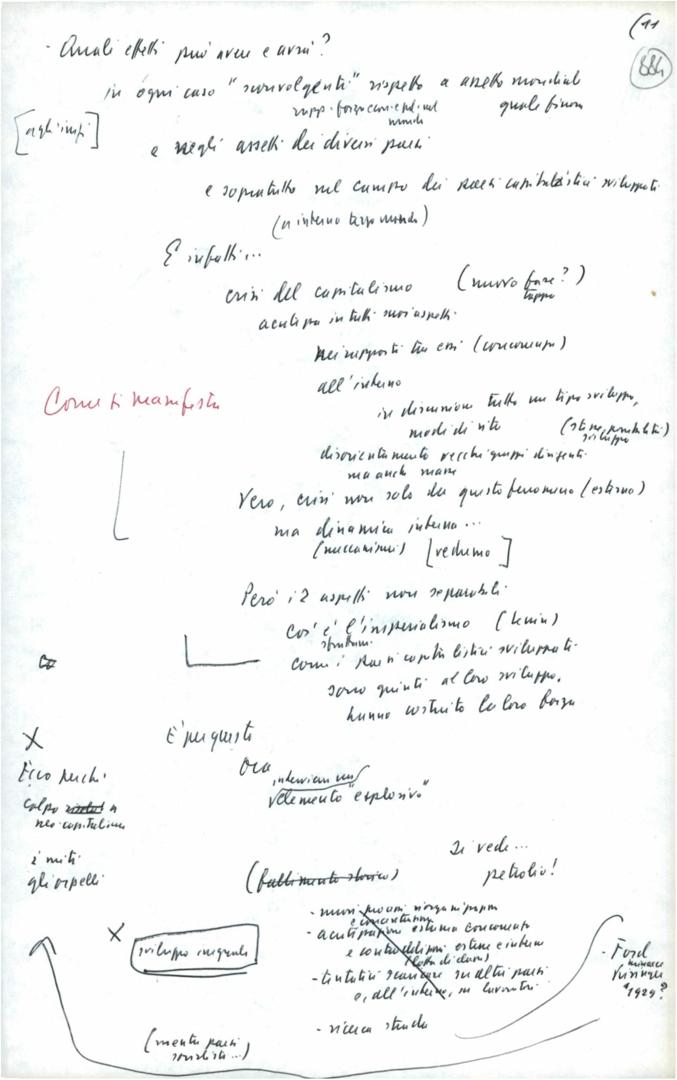 (11
884
- Quali effetti può avere e avrà?
in ogni caso "sconvolgenti" rispetto a assetto mondiale
quale finora
rapp. forza econ. e pol. nel
mondo
[agli inizi]
e negli assetti dei diversi paesi
e sopratutto nel campo dei paesi capitalistici sviluppati
(a interno terzo mondo)
E infatti...
crisi del capitalismo (nuova fase?)
tappa
acutizza in tutti suoi aspetti
nei rapporti tra essi (concorrenza)
all'interno
Come si manifesta
in discussione tutto un tipo sviluppo,
modi di vita (stesse possibilità)
sviluppo
disorientamento vecchi gruppi dirigenti
ma anche masse
Vero, crisi non solo da questo fenomeno (esterno)
ma dinamica interna...
(meccanismi) [vedremo]
Però i 2 aspetti non separabili
Cos'è l'imperialismo (Lenin)
sfruttam.
come i paesi capitalistici sviluppati
sono giunti al loro sviluppo,
hanno costruito la loro forza
X
È per questo
Ora
interviene un
elemento "esplosivo"
Ecco perché
colpo a
neo-capitalismo
i miti
gli orpelli
Si vede...
petrolio!
(fallimento storico)
- nuovi processi riorganizzazione
e concentrazione
- acutizzazione estrema concorrenza
e contraddizioni esterne e interne
(lotta di classe)
- tentativi scaricare su altri paesi
e, all'interno, su lavoratori
X
sviluppo ineguale
- Ford
minacce
Kissinger
"1929"?
- ricerca strada
(mentre paesi
socialisti...)